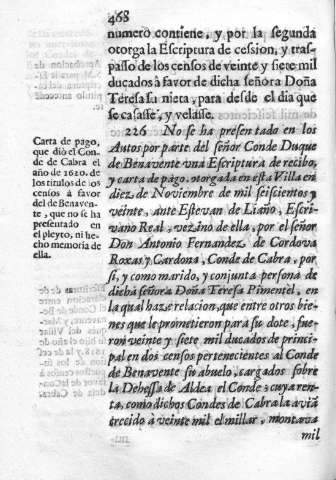 468
numero contiene, y por la segunda
otorga la Escriptura de cession, y tras-
passo de los censos de veinte y siete mil
ducados à favor de dicha señora Doña
Teresa su nieta, para desde el dia que
se casasse, y velasse.
226 No se ha presentado en los
Autos por parte del señor Conde Duque
de Benavente una Escriptura de recibo,
y carta de pago, otorgada en esta Villa en
diez de Noviembre de mil seiscientos y
veinte, ante Estevan de Liaño, Escri-
vano Real, vezino de ella, por el señor
Don Antonio Fernandez de Cordova
Roxas y Cardona, Conde de Cabra, por
sì, y como marido, y conjunta persona de
dicha señora Doña Teresa Pimentel, en
la qual haze relacion, que entre otros bie-
nes que le prometieron para su dote, fue-
ron veinte y siete mil ducados de princi-
pal en dos censos pertenecientes al Conde
de Benavente su abuelo, cargados sobre
la Dehessa de Aldea el Conde: cuya ren-
ta, como dichos Condes de Cabra la avia
crecido à veinte mil el millar, montava
mil
Carta de pago,
que diò el Con-
de de Cabra el
año de 1620. de
los titulos de los
censos à favor
del de Benaven-
te, que no se ha
presentado en
el pleyto, ni he-
cho memoria de
ella.